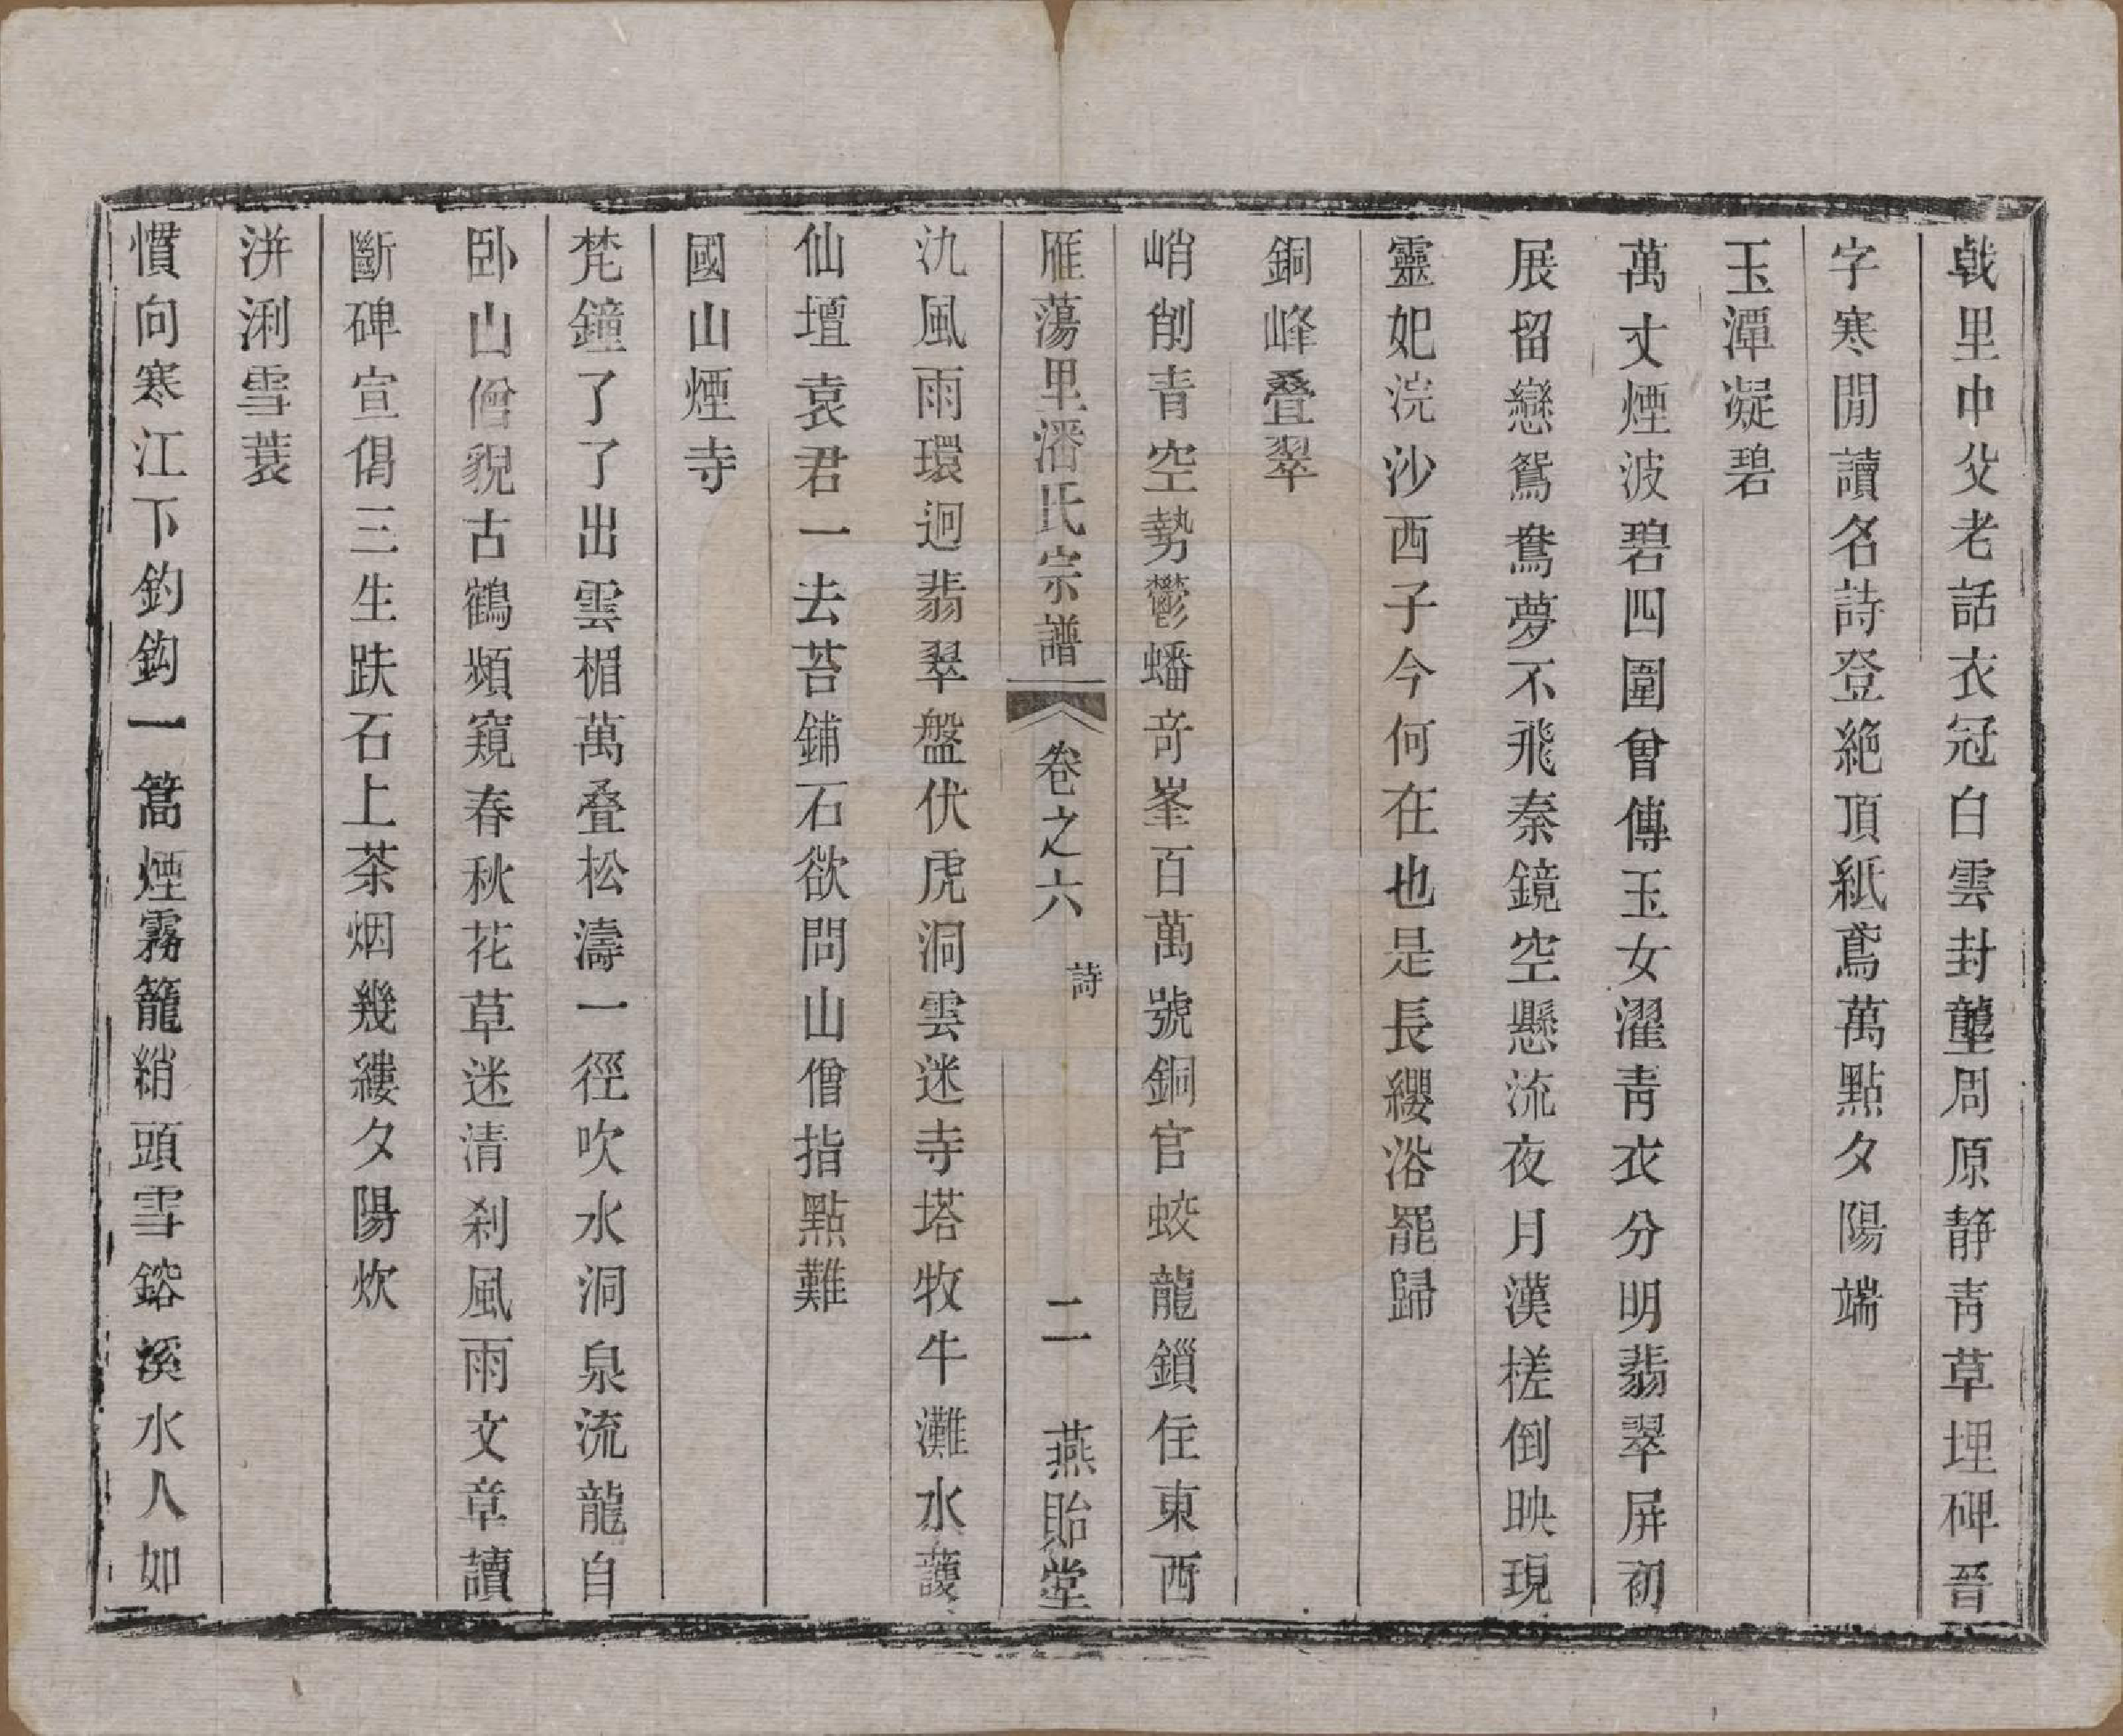 戟里中父老話衣冠白雲封壟周原静靑草埋碑晉
字寒閒讀名詩登絶頂紙鳶萬點夕陽端
玉潭凝碧
萬丈煙波碧四圍曾傳玉女濯靑衣分明翡翠屏初
展留戀鴛鴦夢不飛秦鏡空懸流夜月漢槎倒映現
靈妃浣沙西子今何在也是長纓浴罷歸
銅峰叠翠
峭削青空勢鬱蟠竒峯百萬號銅官蛟龍鎖住東西
雁蕩里潘氏宗譜 卷之六 詩 二 燕貽堂
氿風雨環迴翡翠盤伏虎洞雲迷寺塔牧牛灘水護
仙壇袁君一去苔鋪石欲問山僧指點難
國山煙寺
梵鐘了了出雲楣萬叠松濤一徑吹水洞泉流龍自
卧山僧貌古鶴頻窺春秋花草迷清刹風雨文章讀
斷碑宣倡三生趺石上茶烟幾縷夕陽炊
洴浰雪蓑
慣向寒江下釣鈎一篙煙霧籠綃頭雪鎔溪水人如